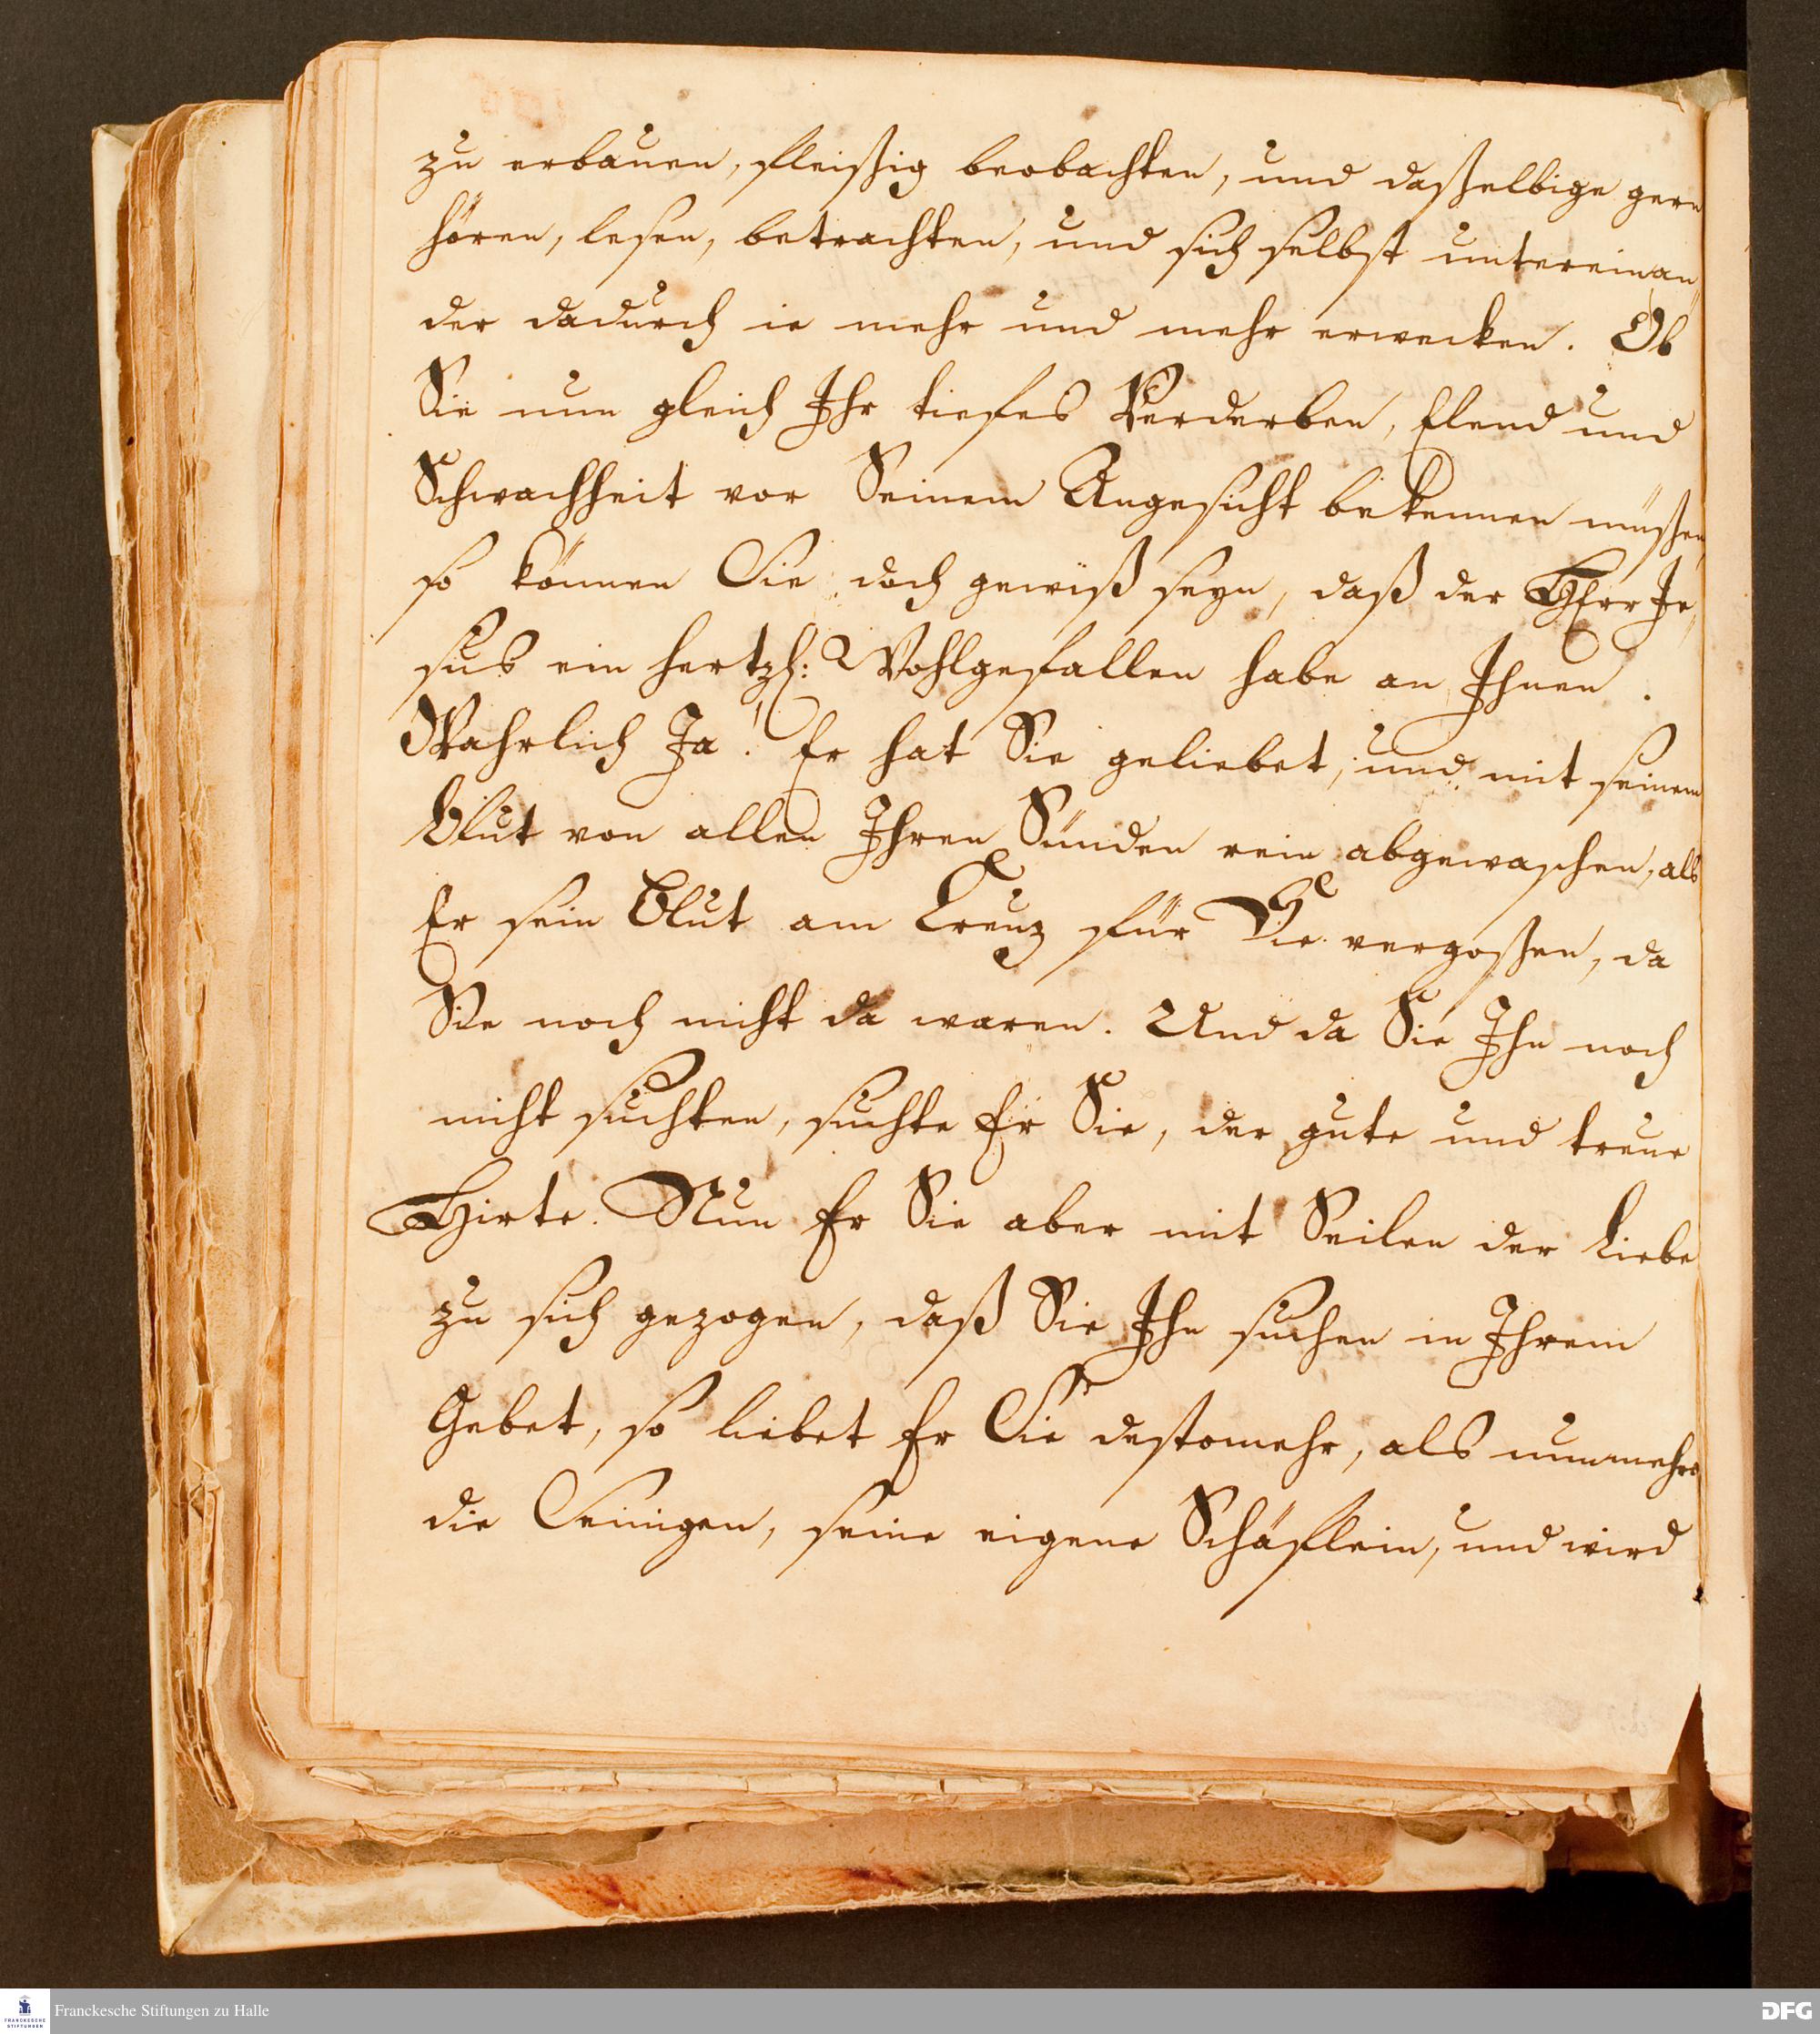 zu erbauen, fleißig beobachten, und daßelbige gern
hören, lesen, betrachten, und sich selbst untereinan
der dadurch ie mehr und mehr erwecken. Ob
Sie nun gleich Ihr tiefes Verderben, Elend und
Schwachheit vor Seinem Angesicht bekennen müßen,
so können Sie doch gewiß seyn, daß der HErr Je,
sus ein hertzl: Wohlgefallen habe an Ihnen.
Wahrlich Ja! Er hat Sie geliebet, und mit seinem
Blut von allen Ihren Sünden rein abgewaschen, als
Er sein Blut am Creuz für Sie vergoßen, da
Sie noch nicht da waren. Und da Sie Ihn noch
nicht suchten, suchte Er Sie, der gute und treue
Hirte. Nun Er Sie aber mit Seilen der Liebe
zu sich gezogen, daß Sie Ihn suchen in Ihrem
Gebet, so liebet Er Sie destomehr, als nunmehro
die Seinigen, seine eigene Schäflein, und wird
Franckesche Stiftungen zu Halle
FRANCKESCHE
STIFTUNGEN
DFG